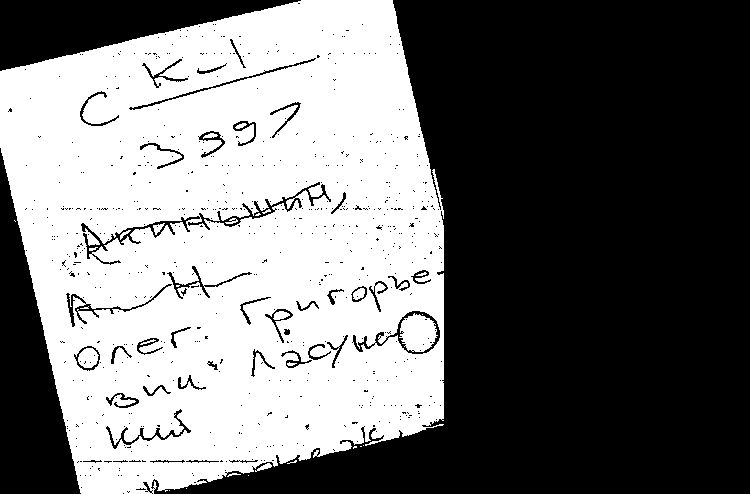 С К-1
3997
Акиньшин,
А. Н
Олег. Григорье-
вич Ласунс
кий